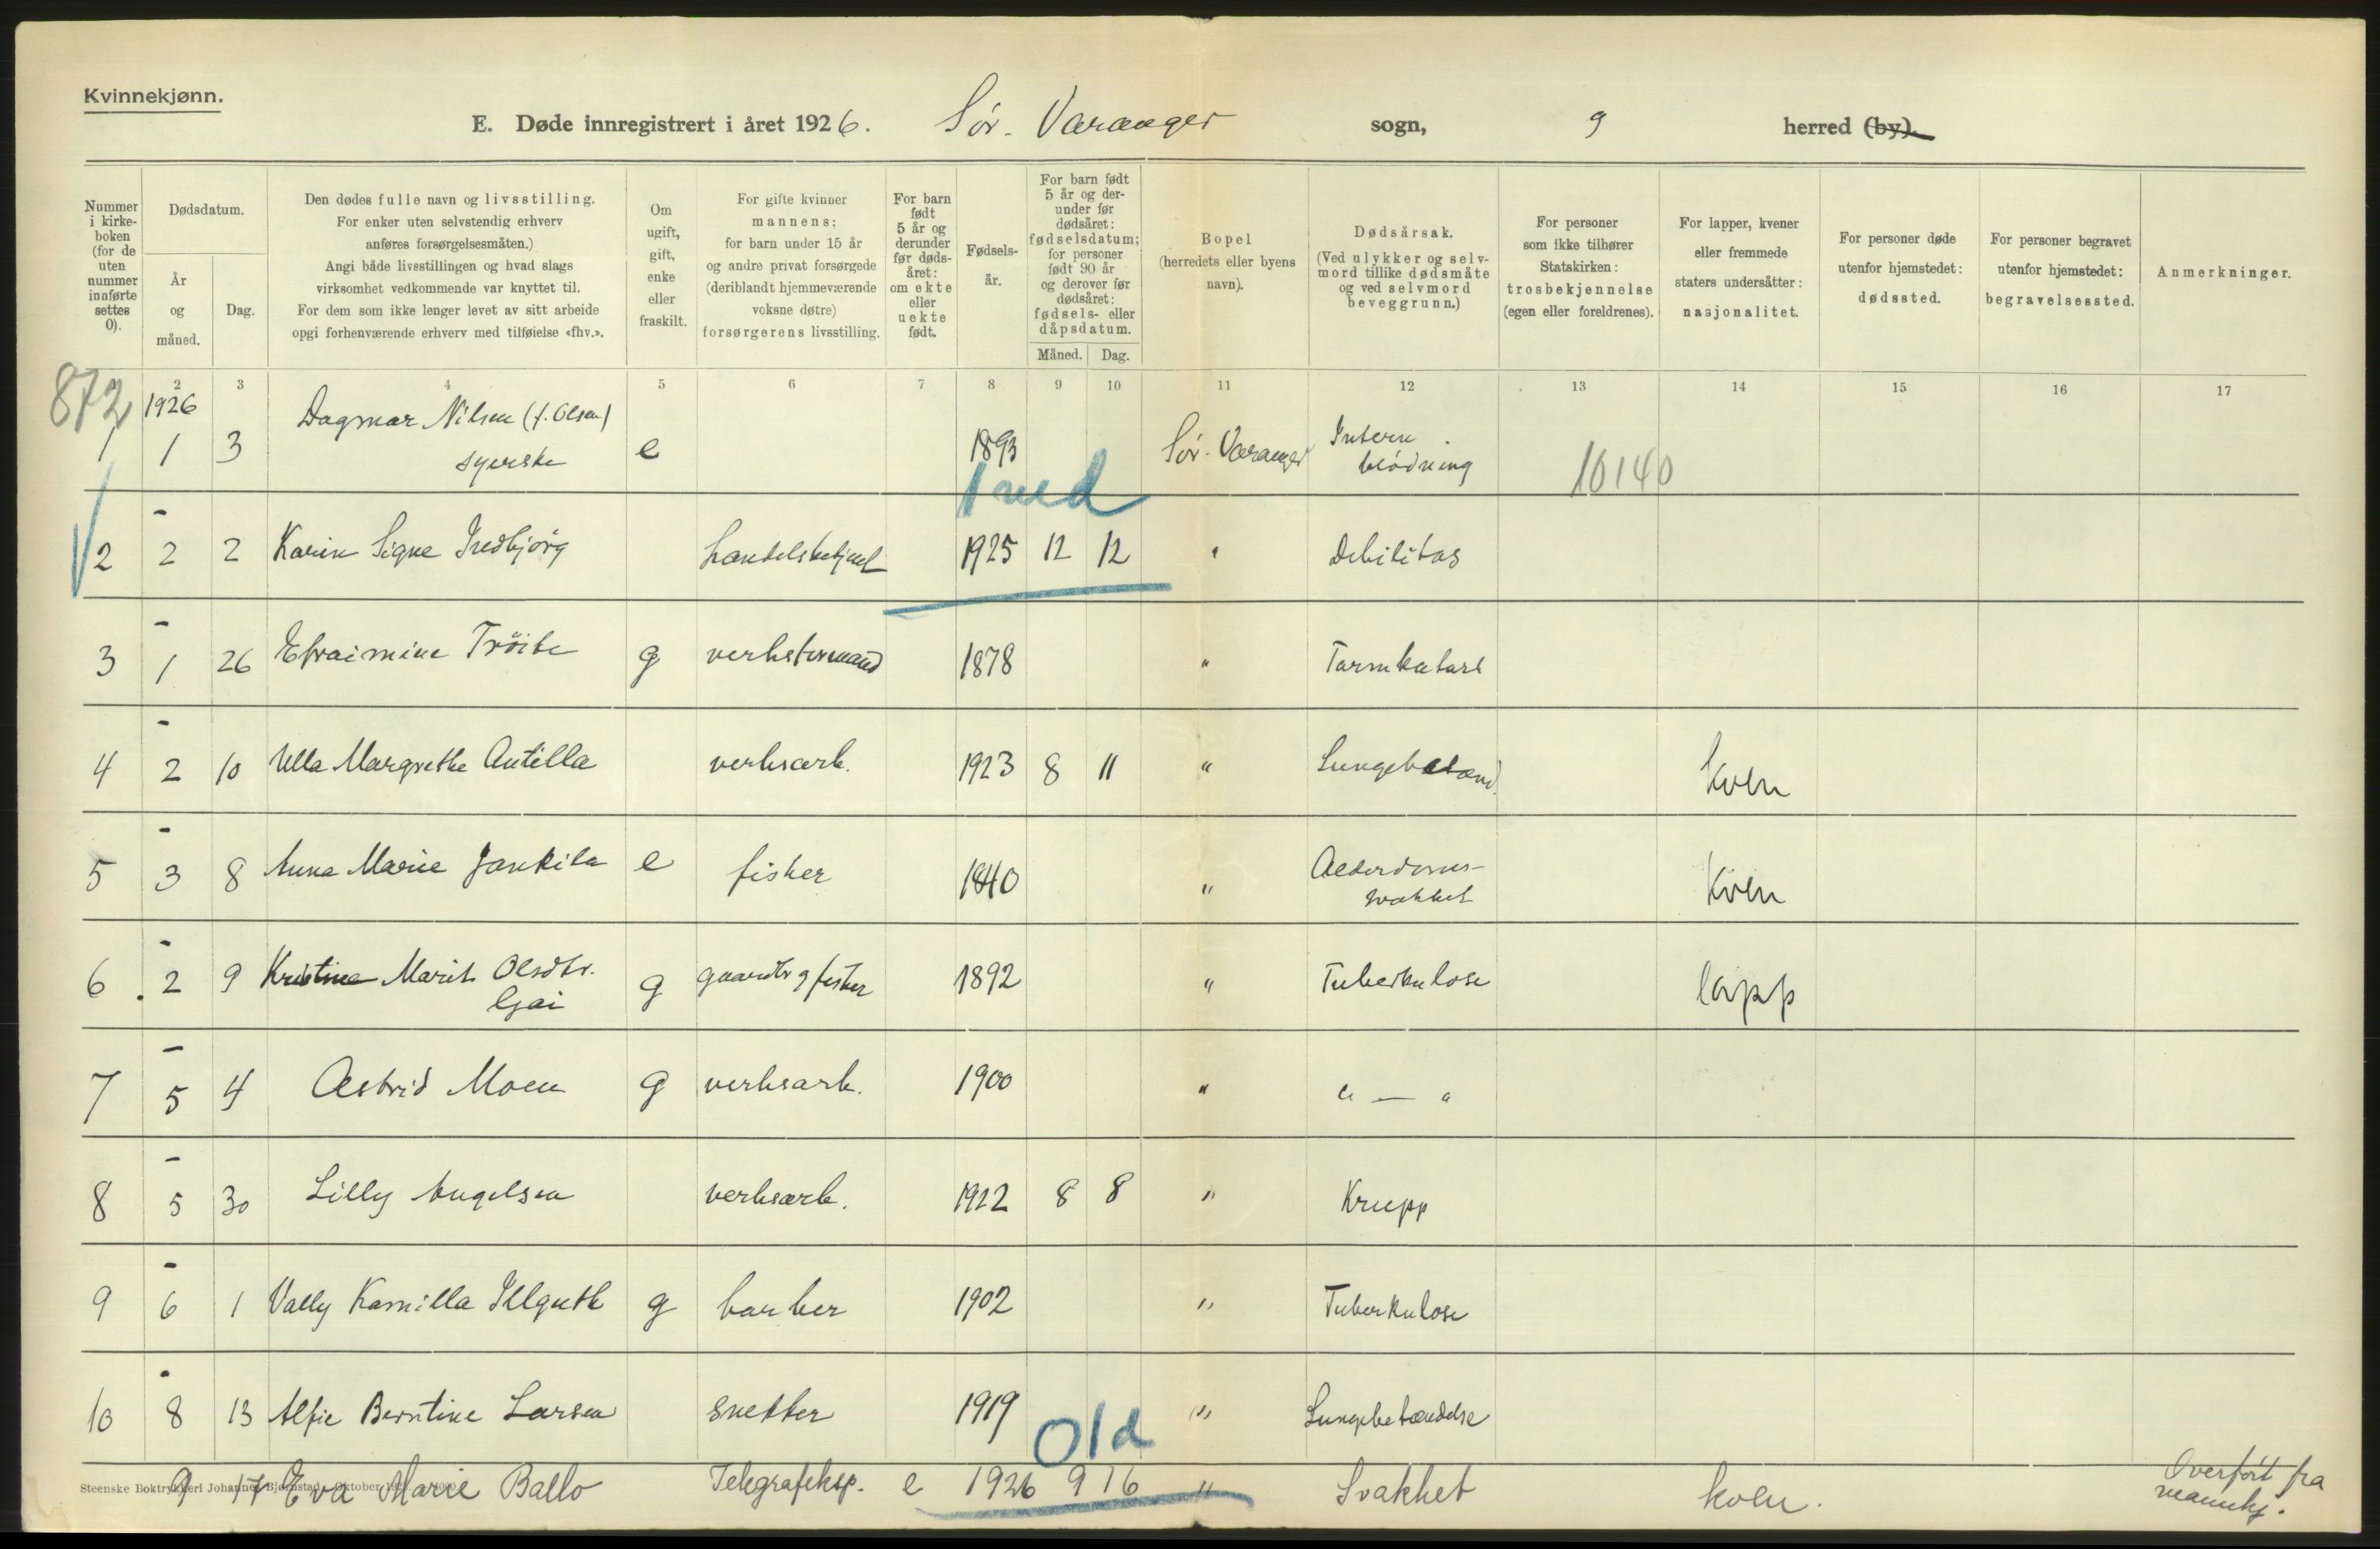 Kvinnekjønn.
E. Døde innregistrert i året 1926. Sør-Varanger sogn, 9 herred (by).
Nummer i kirkeboken (for de uten nummer innførte settes 0).
Dødsdatum.
År og måned.
Dag.
Den dødes fulle navn og livsstilling.
For enker uten selvstendig erhverv
anføres forsørgelsesmåten.)
Angi både livsstillingen og hvad slags
virksomhet vedkommende var knyttet til.
For dem som ikke lenger levet av sitt arbeide
opgi forhenværende erhverv med tilføielse «fhv.».
Om ugift, gift, enke eller fraskilt.
For gifte kvinner
mannens;
for barn under 15 år
og andre privat forsørgede
(deriblandt hjemmeværende
voksne døtre)
forsørgerens livsstilling.
For barn født 5 år og derunder før dødsåret: om ekte eller uekte født.
Fødselsår.
For barn født 5 år og derunder før dødsåret: fødselsdatum; for personer født 90 år og derover før dødsåret: fødsels- eller dåpsdatum.
Måned. Dag.
Bopel
(herredets eller byens
navn).
Dødsårsak.
(Ved ulykker og selvmord tillike dødsmåte
og ved selvmord
beveggrunn.)
For personer
som ikke tilhører
Statskirken:
trosbekjennelse
(egen eller foreldrenes).
For lapper, kvener
eller fremmede
staters undersåtter:
nasjonalitet.
For personer døde
utenfor hjemstedet:
dødssted.
For personer begravet
utenfor hjemstedet:
begravelsessted.
Anmerkninger.
2 3 4 5 6 7 8 9 10 11 12 13 14 15 16 17
872
1926
1 1 3 Dagmar Nilsen (f. Olsen) syerske e 1893 Sør-Varanger Intern blødning 10140
1 md
2 - 2 2 Karin Signe Indbjörg handelsbetjent 1925 12 12 " Debilitas
3 - 1 26 Efraimine Tröite g verksformand 1878 " Tarmkatarh
4 - 2 10 Ulla Margrethe Antilla verksarb. 1923 8 11 " Lungebetænd. kven
5 - 3 8 Anna Marie Jankila e fisker 1840 " Alderdomssvakket kven
6 - 2 9 Kristine Marit Olsdtr. Gai g gaardbr og fisker 1892 " Tuberkulose lapp
7 - 5 4 Astrid Moen g verksarb. 1900 " " — "
8 - 5 30 Lilly Angelsen verksarb. 1922 8 8 " Krupp
9 - 6 1 Vally Kamilla Illguth g barber 1902 " Tuberkulose
10 - 8 13 Alfie Berntine Larsen snekker 1919 " Lungebetændelse
01d
9 17 Eva Marie Ballo Telegrafeksp. e 1926 9 16 " Svakhet kven. Overført fra mannkj.
Steenske Boktrykkeri Johannes Bjørnstad. Oktober